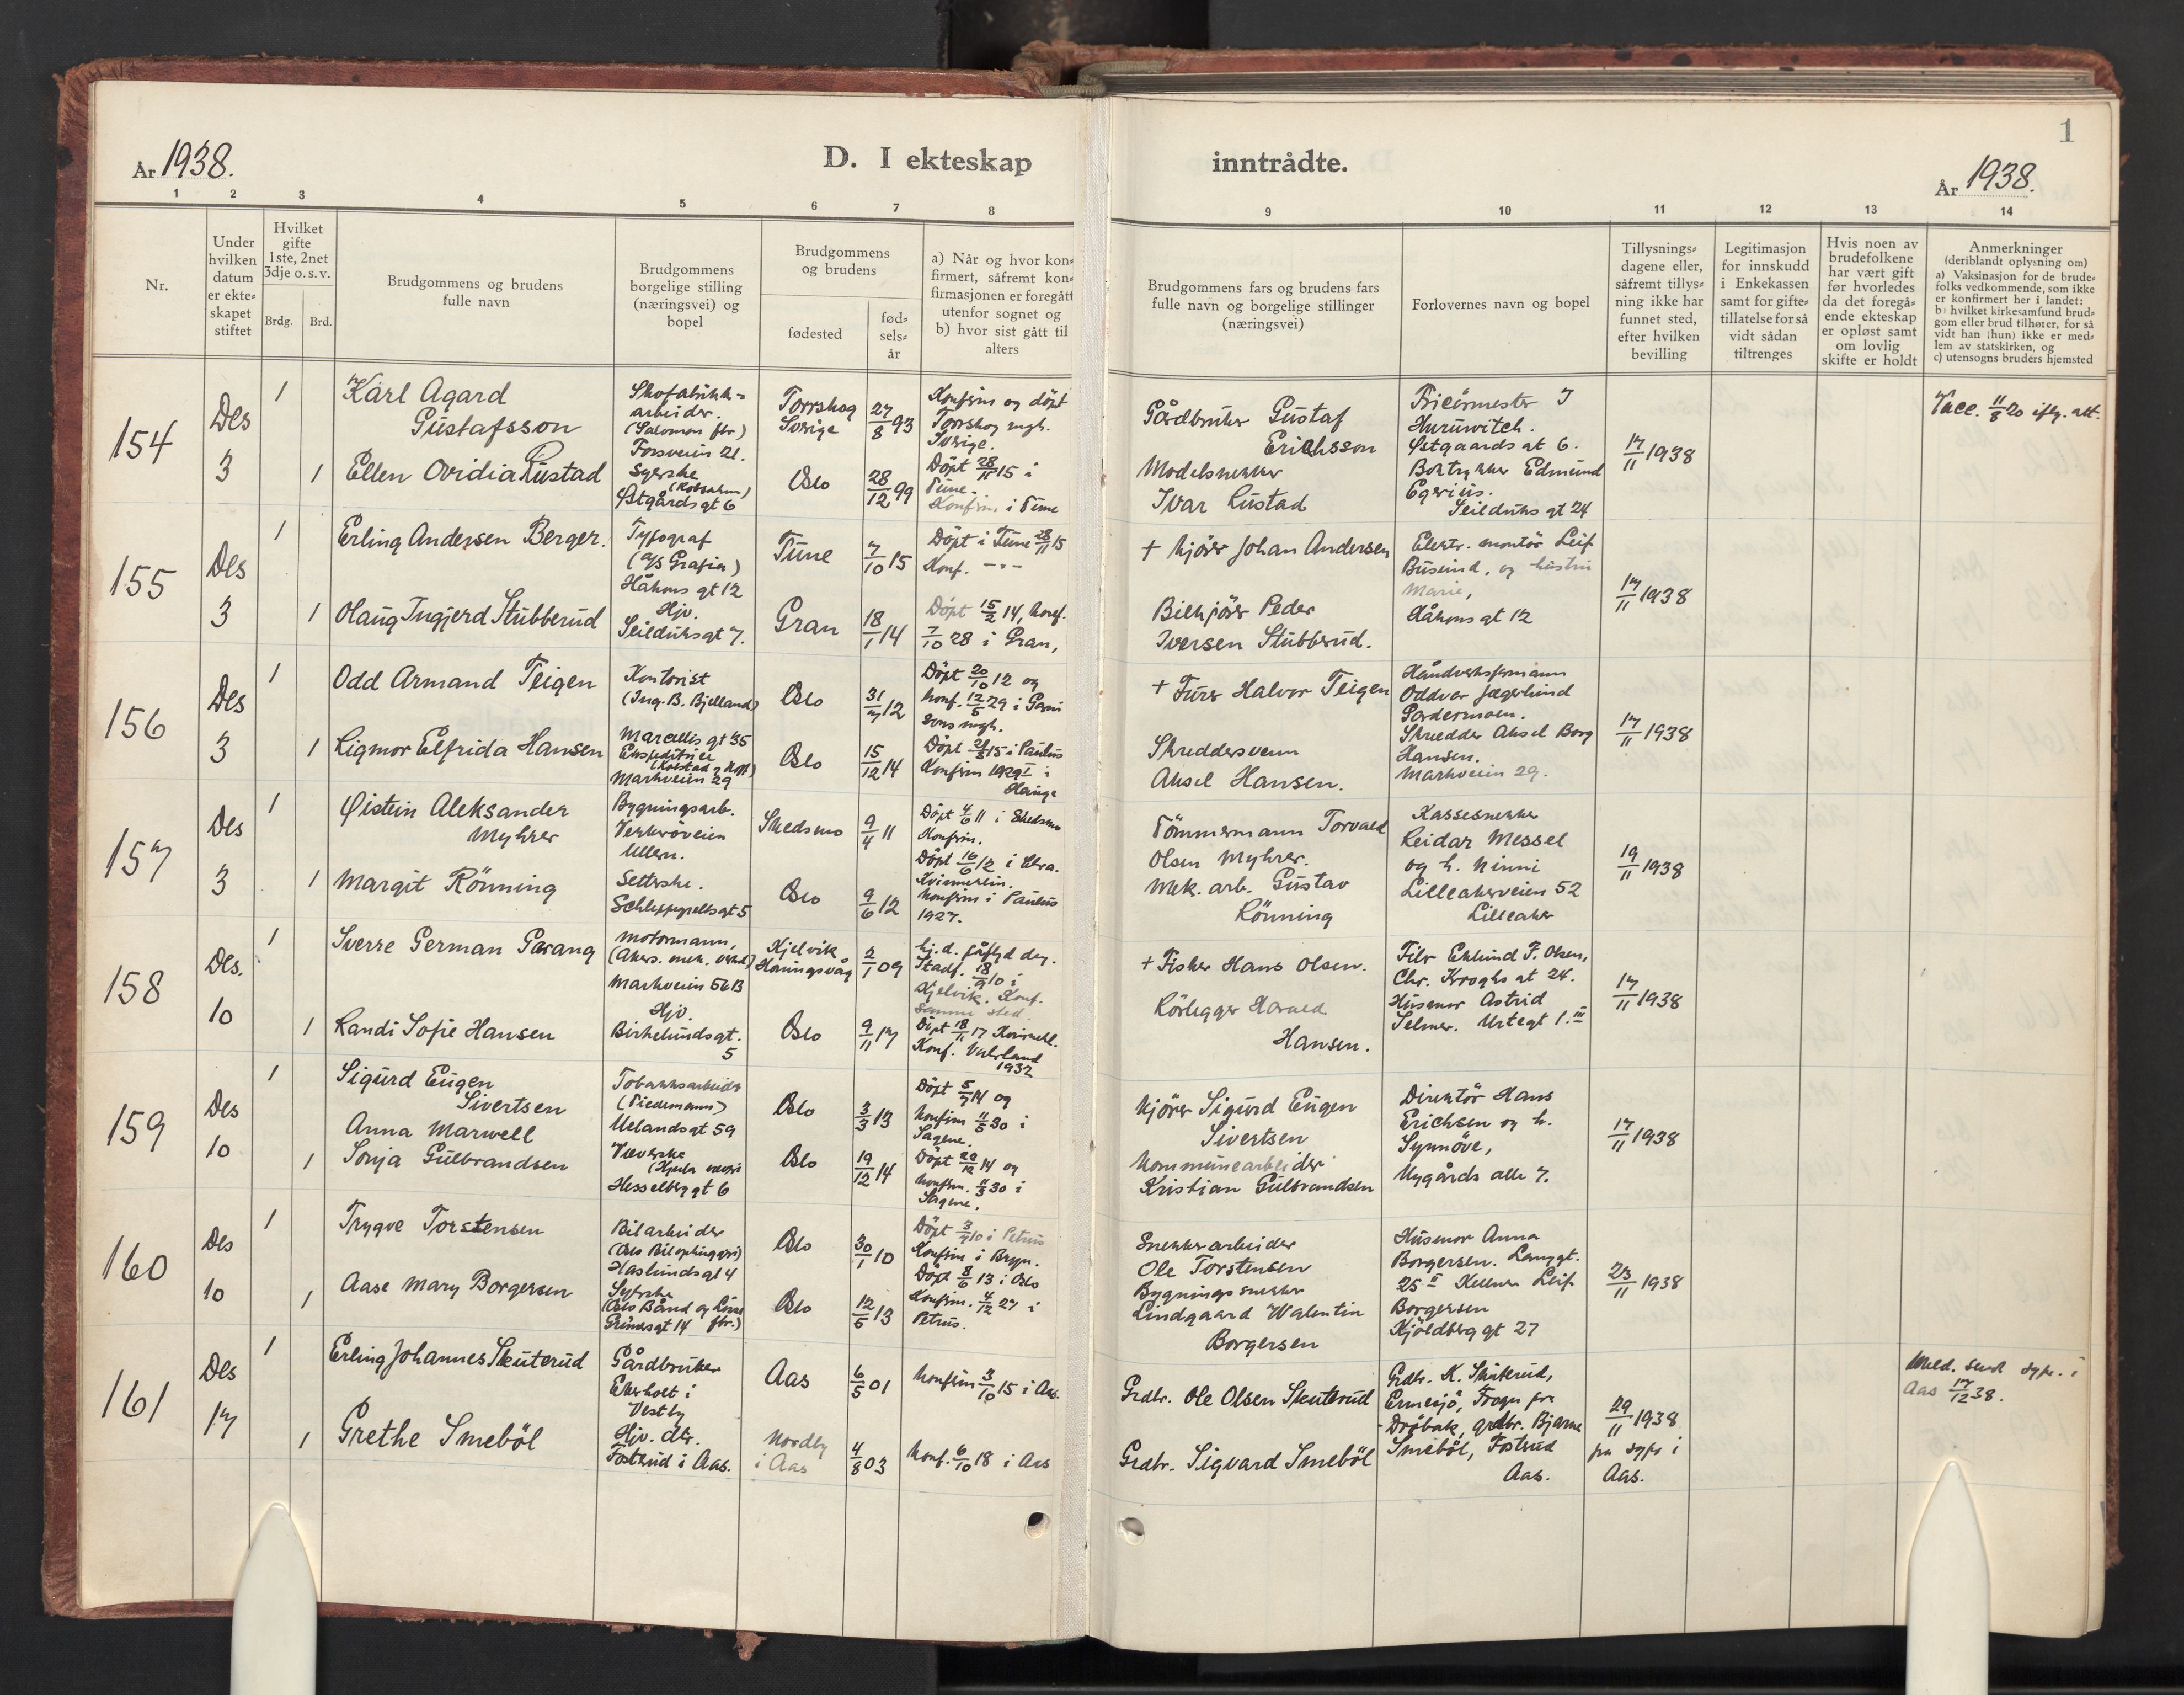 År 1938.
D. I ekteskap
inntrådte.
1
År 1938.
1 2 3 4 5 6 7 8 9 10 11 12 13 14
Nr.
Under
hvilken
datum
er ekte-
skapet
stiftet
Hvilket
gifte
1ste, 2net
3dje o. s. v.
Brdg. Brd.
Brudgommens og brudens
fulle navn
Brudgommens
borgelige stilling
(næringsvei) og
bopel
Brudgommens
og brudens
fødested
fød-
sels-
år
a) Når og hvor kon-
firmert, såfremt kon-
firmasjonen er foregått
utenfor sognet og
b) hvor sist gått til
alters
Brudgommens fars og brudens fars
fulle navn og borgelige stillinger
(næringsvei)
Forlovernes navn og bopel
Tillysnings-
dagene eller,
såfremt tillys-
ning ikke har
funnet sted,
efter hvilken
bevilling
Legitimasjon
for innskudd
i Enkekassen
samt for gifte-
tillatelse for så
vidt sådan
tiltrenges
Hvis noen av
brudefolkene
har vært gift
før hvorledes
da det foregå-
ende ekteskap
er opløst samt
om lovlig
skifte er holdt
Anmerkninger
(deriblandt oplysning om)
a) Vaksinasjon for de brude-
folks vedkommende, som ikke
er konfirmert her i landet:
b) hvilket kirkesamfund brud-
gom eller brud tilhører, for så
vidt han (hun) ikke er med-
lem av statskirken, og
c) utensogns bruders hjemsted
154
Des
3
1
Karl Agard
Gustafsson
Skofabrikk-
arbeider.
(Salomon fbr)
Forsveien 21.
Torrskog
Sverige
27/8 93
Konfirm og döpt
Torrskog mgh.
Sverige.
Gårdbruker Gustaf
Erichsson
Fricörmester I
Huruwitch.
Østgaards gt 6.
17/11 1938
Vacc. 11/8 20 iflg. att.
1
Ellen Ovidia Rustad
Syerske
Østgårds gt 6
Oslo
28/12 99
Döpt 28/11 15 i
Tune.
Konfirm. i Tune
Modelsnekker
Ivar Rustad
Boktrykker Edmund
Egerius.
Seilduks gt 24
155
Des
3
1
Erling Andersen Berger.
Typograf
(A/S Grafia)
Håkons gt 12
Tune
7/10 15
Döpt i Tune 28/11 15
Konf. -"-
+ Kjörer Johan Andersen
Elektr. montör Leif
Buserud, og hustru
Marie,
Håkons gt 12
17/11 1938
1
Olaug Ingjerd Stubberud
Hjv.
Seilduksgt 7.
Gran
18/1 14
Döpt 15/2 14, konf.
7/10 28 i Gran,
Bilkjörer Peder
Iversen Stubberud.
156
Des
3
1
Odd Armand Teigen
Kontorist
(Ing. B. Bjelland)
Marcelis gt 35
Oslo
31/7 12
Döpt 20/10 12 og
konf. 12/5 29 i Garni
sons mgh.
+ Furer Halvor Teigen
Håndverksfermann
Oddvar Jægerlund
Gardermoen.
17/11 1938
1
Rigmor Elfrida Hansen
Ekspeditrice
Markveien 29
Oslo
15/12 14
Döpt 21/3 15 i Paulus
Konfirm 1929 I i
Hauge
Skreddersvenn
Aksel Hansen.
Skredder Aksel Borg
Hansen.
Markveien 29.
157
Des
3
1
Øistein Aleksander
Myhrer
Bygningsarb.
Verkeröveien
Ullern.
Skedsmo
9/4 11
Döpt 4/6 11 i Skedsmo
Konfirm.
Tömmermann Torvald
Olsen Myhrer.
Kassesnekker
Reidar Messel
og h. Ninni
Lilleakerveien 52
Lilleaker
19/11 1938
1
Margit Rönning
Setterske.
Schleppegrellsgt 5
Oslo
9/6 12
Döpt 16/6 12 i Hera.
Kvinneklin.
Konfirm i Paulus
1927.
Mek. arb. Gustav
Rönning
158
Des.
10
1
Sverre German Garang
Motormann,
(Akers. mek. verkst)
Markveien 56B
Kjelvik
Honingsvåg
2/1 09
hj.d.
Stadf. 18/9 10 i
Kjelvik. Konf.
samme sted.
+ Fisker Hans Olsen.
Filer Eklund F. Olsen,
Chr. Kroghs gt 24.
Husmor Astrid
Selmer. Urtegt 1. III
17/11 1938
1
Randi Sofie Hansen
Hjv.
Birkelundsgt.
5
Oslo
9/11 17
Döpt 18/11 17 Kvinnekl.
Konf. Vålerland
1932
Rörlegger Harald
Hansen.
159
Des
10
1
Sigurd Eugen
Sivertsen
Tobakksarbeider
(Tiedemann)
Uelandsgt 59
Oslo
3/3 13
Döpt 5/7 14 og
konfirm 11/5 30 i
Sagene.
Kjörer Sigurd Eugen
Sivertsen
Direktör Hans
Erichsen og h.
Synnöve,
Nygårds alle 7.
17/11 1938
1
Anna Marwell
Sonja Gulbrandsen
Veverske
(Hjula veveri
Hesselberggt 6
Oslo
19/12 14
Döpt 29/12 14 og
konfirm. 11/3 30 i
Sagene.
Kommunearbeider
Kristian Gulbrandsen
160
Des
10
1
Trygve Torstensen
Bilarbeider
(Oslo Bilophuggeri)
Haslundsgt 4
Oslo
30/1 10
Döpt 3/7 10 i Petrus
Konfirm i Bryn.
Snekkerarbeider
Ole Torstensen
Husmor Anna
Borgersen. Langgt.
25 II Kelner Leif
Borgersen
Kjöldberggt 27
23/11 1938
1
Aase Mary Borgersen
Syerske
(Oslo Bånd og Lisse
Grünersgt 14 fbr.)
Oslo
12/5 13
Döpt 8/6 13 i Oslo
Konfirm. 4/12 27 i
Petrus.
Bygningssnekker
Lindgaard Walentin
Borgersen
161
Des
17
1
Erling Johannes Skuterud
Gårdbruker
Ekeholt i
Vestby
Aas
6/5 01
Konfirm 3/10 15 i Aas.
Grdbr. Ole Olsen Skuterud
Grdbr. K. Skuterud,
Ermesjö, Frogn pr
Dröbak, grdbr. Bjarne
Smeböl, Fosterud
Aas.
29/11 1938
fra sgpr i
Aas.
Meld. sendt sgpr. i
Aas 17/12 38.
1
Grethe Smeböl
Hjv. dtr.
Fosterud i Aas.
Nordby
i Aas
4/8 03
Konf. 6/10 18 i Aas
Grdbr. Sigvard Smeböl